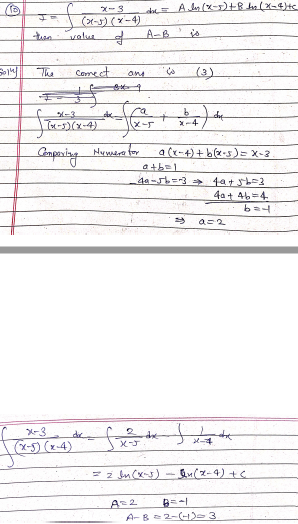 (10) I = ∫ x-3 / (x-5)(x-4) dx = A ln(x-5) + B ln(x-4)+c
then value of A-B is
Soln) The correct ans is (3)
∫ x-3 / (x-5)(x-4) dx = ∫ ( a / x-5 + b / x-4 ) dx
Comparing Numerator a(x-4) + b(x-5) = x-3
a+b=1
-4a-5b=-3 ⇒ 4a+5b=3
4a+4b=4
b=-1
⇒ a=2
∫ x-3 / (x-5)(x-4) dx = ∫ 2 / x-5 dx - ∫ 1 / x-4 dx
= 2 ln(x-5) - ln(x-4) + c
A=2 B=-1
A-B = 2-(-1) = 3